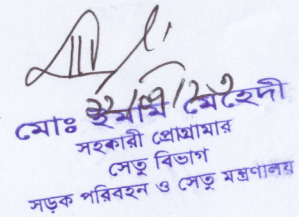 মোঃ ইমাম মেহেদী
সহকারী প্রোগ্রামার
সেতু বিভাগ
সড়ক পরিবহন ও সেতু মন্ত্রণালয়